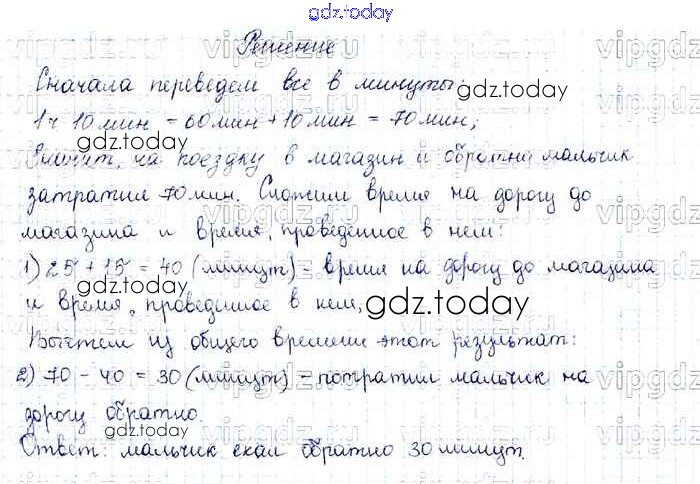 gdz.today
Решение
Сначала переведем все в минуты:
gdz.today
1 ч 10 мин = 60 мин + 10 мин = 70 мин;
gdz.today
Значит, на поездку в магазин и обратно мальчик
затратил 70 мин. Сложим время на дорогу до
магазина и время, проведенное в нем:
1) 25 + 15 = 40 (минут) - время на дорогу до магазина
и время, проведенное в нем,
gdz.today
Вычтем из общего времени этот результат:
2) 70 - 40 = 30 (минут) - потратил мальчик на
дорогу обратно.
gdz.today
Ответ: мальчик ехал обратно 30 минут.